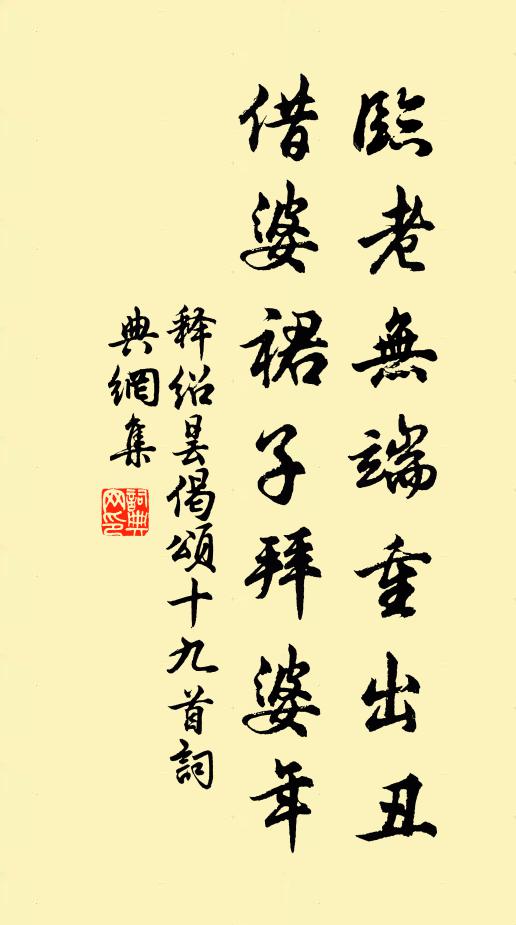 臨老無端重出丑
借婆裙子拜婆年
释紹昙偈頌十九首詞
典網集
詞典網印